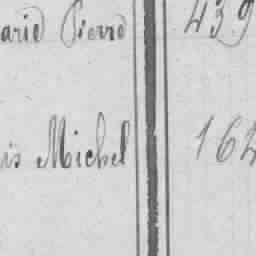 arie Pierre 439
is Michel 162